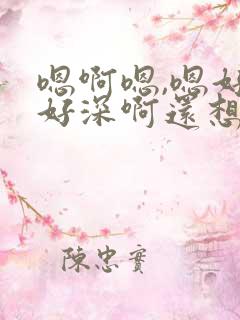 嗯啊嗯,嗯好
好深啊還想
陳忠實